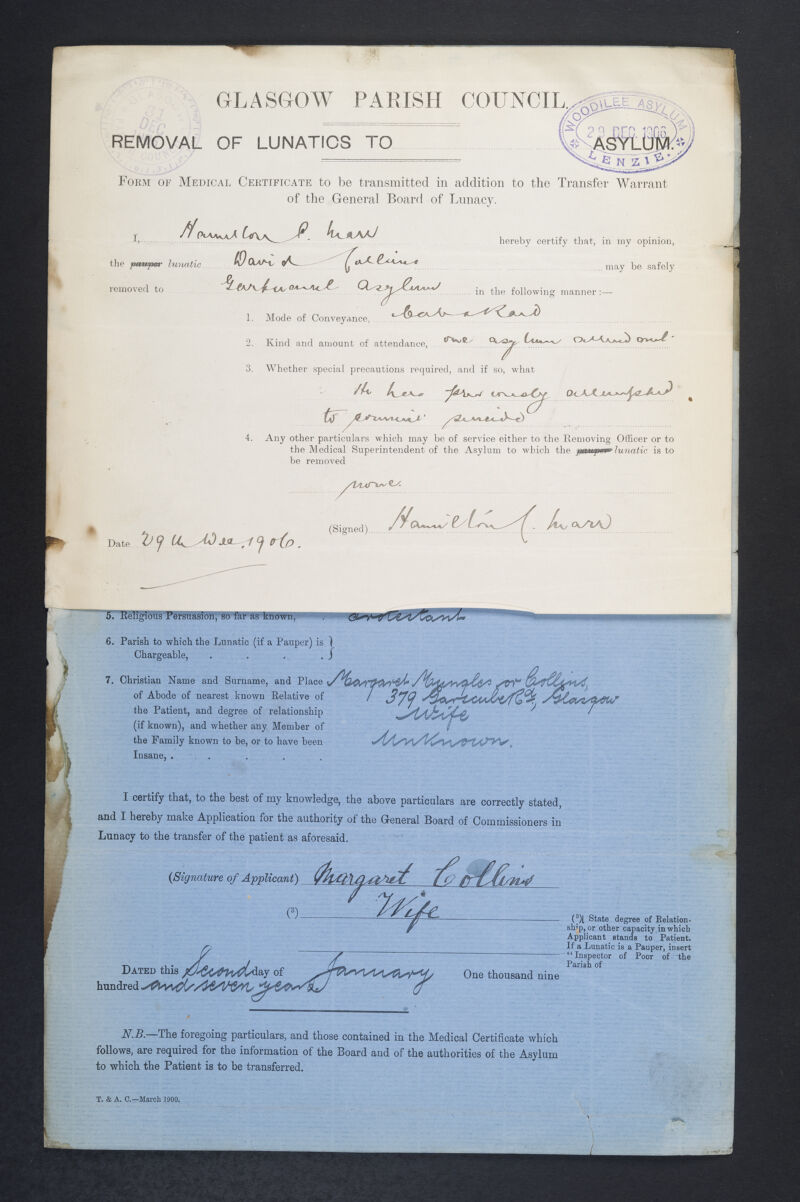 GLASGOW PARISH COUNCIL.
WOODILEE ASYLUM
29 DEC. 1906
LENZIE.
DEC
REMOVAL OF LUNATICS TO ASYLUM.
FORM OF MEDICAL CERTIFICATE to be transmitted in addition to the Transfer Warrant
of the General Board of Lunacy.
I, Hamilton C. Marr hereby certify that, in my opinion,
the pauper lunatic David Collins may be safely
removed to Gartnavel Asylum in the following manner:—
1. Mode of Conveyance, Cab & Road
2. Kind and amount of attendance, one asylum attendant.
3. Whether special precautions required, and if so, what
He has previously attempted
to commit suicide
4. Any other particulars which may be of service either to the Removing Officer or to
the Medical Superintendent of the Asylum to which the pauper lunatic is to
be removed
none.
(Signed) Hamilton C. Marr
Date 29th Dec. 1906.
5. Religious Persuasion, so far as known, . Protestant
6. Parish to which the Lunatic (if a Pauper) is }
Chargeable, . . . . }
7. Christian Name and Surname, and Place Margaret Mungles or Collins,
of Abode of nearest known Relative of 379 Garscube Rd, Glasgow
the Patient, and degree of relationship Wife
(if known), and whether any Member of
the Family known to be, or to have been Unknown.
Insane, . . . . .
I certify that, to the best of my knowledge, the above particulars are correctly stated,
and I hereby make Application for the authority of the General Board of Commissioners in
Lunacy to the transfer of the patient as aforesaid.
(Signature of Applicant) Margaret Collins
(3) Wife
(3) State degree of Relation-
ship, or other capacity in which
Applicant stands to Patient.
If a Lunatic is a Pauper, insert
"Inspector of Poor of the
Parish of
DATED this Second day of January One thousand nine
hundred and seven years
N.B.—The foregoing particulars, and those contained in the Medical Certificate which
follows, are required for the information of the Board and of the authorities of the Asylum
to which the Patient is to be transferred.
T. & A. C.—March 1900.